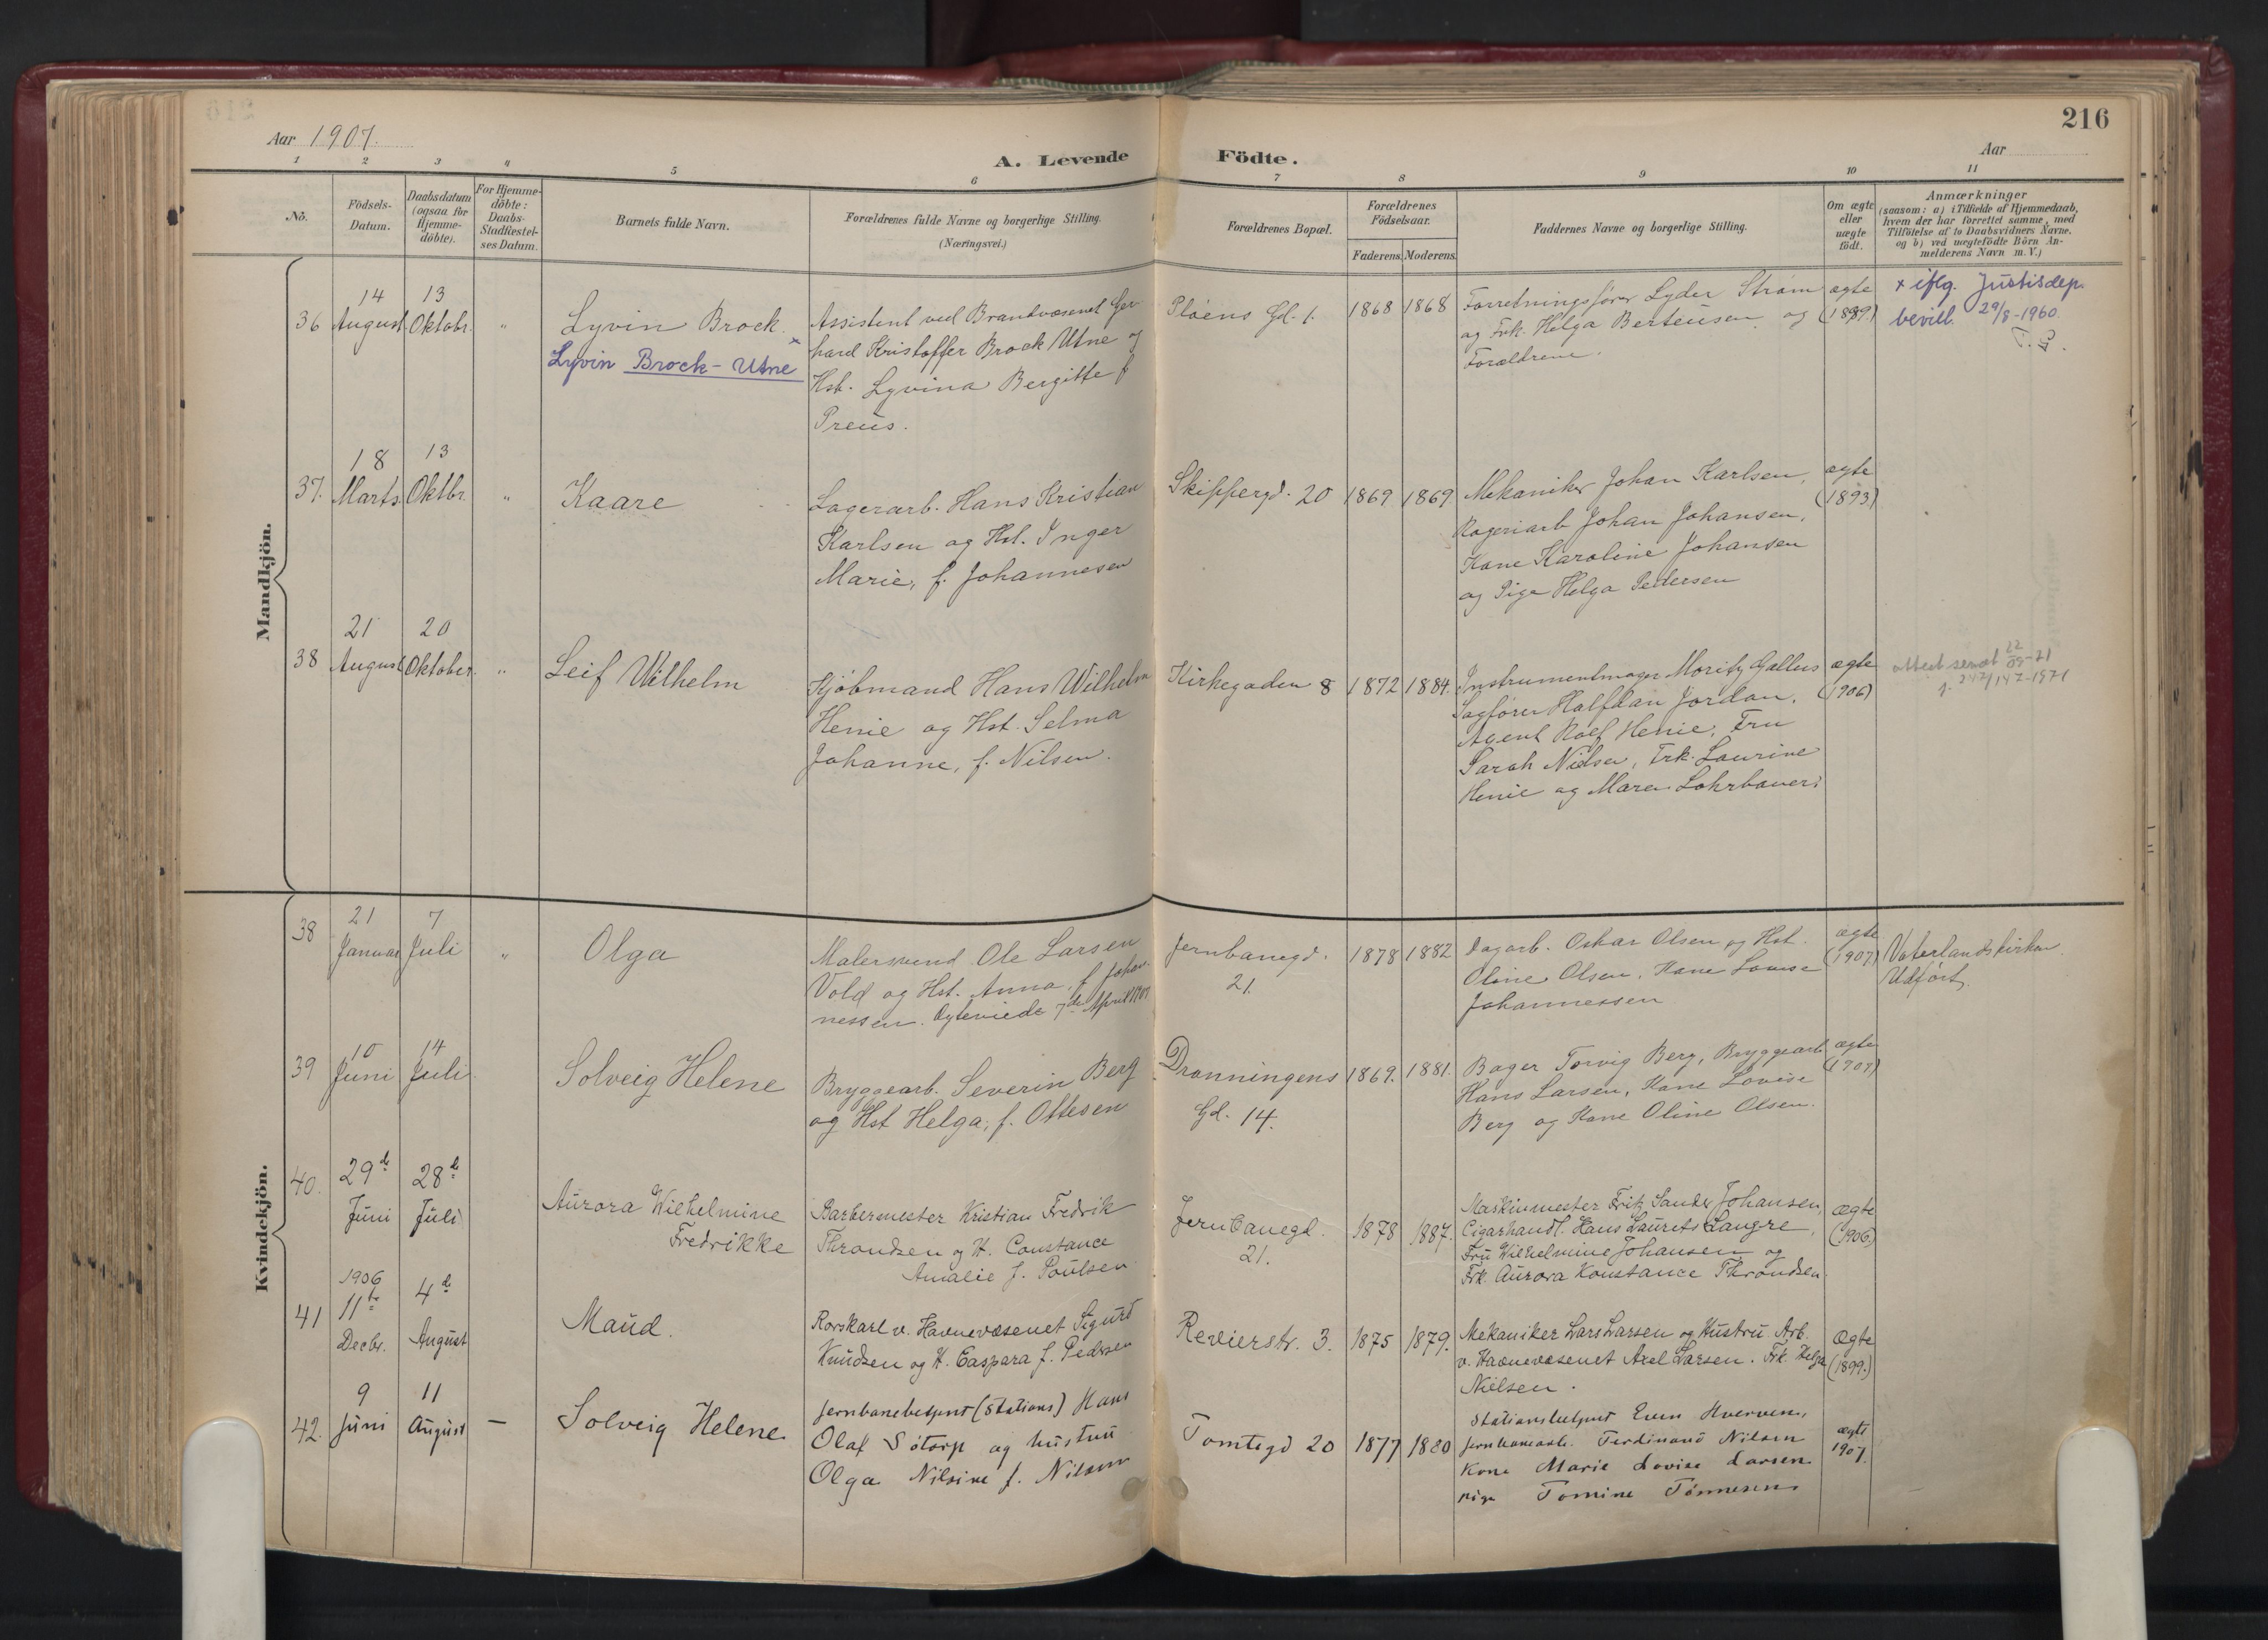 216
Aar 1907.
A. Levende Födte.
Aar
1 2 3 4 5 6 7 8 9 10 11
No.
Födsels-
Datum.
Daabsdatum
(ogsaa for
Hjemme-
döbte).
For Hjemme-
döbte:
Daabs-
Stadfæstel-
ses Datum.
Barnets fulde Navn.
Forældrenes fulde Navne og borgerlige Stilling.
(Næringsvei.)
Forældrenes Bopæl.
Forældrenes
Födselsaar.
Faderens. Moderens.
Faddernes Navne og borgerlige Stilling.
Om ægte
eller
uægte
födt.
Anmærkninger
(saasom: a) i Tilfælde af Hjemmedaab,
hvem der har forrettet samme, med
Tilföielse af to Daabsvidners Navne.
og b) ved uægtefödte Börn An-
melderens Navn m. V.)
Mandkjön.
36
14
August
13
Oktobr.
"
Lyvin Brock. x
Lyvin Brock-Utne
Assistent ved Brandvæsenet Ger-
hard Kristoffer Brock Utne og
Hst. Lyvina Bergitte f
Preus.
Pløens Gd. 1.
1868
1868
Forretningsfører Lyder Strøm
og Frk. Helga Bertensen og
Forældrene.
ægte
(1899.)
x iflg. Justisdep.
bevill. 29/8-1960.
37.
18
Marts.
13
Oktbr.
"
Kaare
Lagerarb. Hans Kristian
Karlsen og Hst. Inger
Marie, f. Johannesen
Skippergd. 20
1869
1869
Mekaniker Johan Karlsen,
Johan Johansen,
Kone Karoline Johansen
og Pige Helga Pedersen
ægte
(1893)
38
21
August
20
Oktober.
"
Leif Wilhelm
Kjøbmand Hans Wilhelm
Henie og Hst. Selma
Johanne, f. Nilsen.
Kirkegaden 8
1872
1884.
Instrumentmager Moritz Gallus
Sagfører Halfdan Jordan,
Agent Rolf Henie, Fru
Sarah Nielsen, Frk. Laurine
Henie og Maren Lohrbauer.
ægte
(1906)
attest sendt 22/09-71
Kvindekjön.
38
21
Januar
7
Juli
"
Olga
Malersvend Ole Larsen
Vold og Hst. Anna, f Johan-
nessen. Ægteviede 7de April 1907
Jernbanegd.
21.
1878
1882
Dagarb. Oskar Olsen og Hst.
Oline Olsen, Kone Lovise
Johannessen
ægte
(1907)
Vaterlandskirken
Udført.
39
10
Juni
14
Juli
Solveig Helene
Bryggearb. Severin Berg
og Hst Helga, f. Ottesen
Dronningens
Gd. 14.
1869.
1881.
Bager Torvig Berg, Bryggearb
Hans Larsen, Kone Lovise
Berg og Kone Oline Olsen.
ægte
40.
29de
Juni
28de
Juli
Aurora Wilhelmine
Fredrikke
Barbermester Kristian Fredrik
Throndsen og H. Constance
Amalie f. Poulsen
Jernbanegd.
21.
1878
1887.
Maskinmester Fritz Sander Johansen,
Cigarhandl. Hans Laurets Langre,
Fru Wilhelmine Johansen og
Frk. Aurora Konstance Throndsen.
ægte
(1906)
41
1906
11te
Decbr.
4de
August
Maud.
Rorskarl v. Havnevæsenet Sigurd
Knudsen og H. Caspara f. Pedersen
Revierstr. 3.
1875
1879.
Mekaniker Lars Larsen og Hustru. Arb.
v. Havnevæsenet Axel Larsen. Frk. Helga
Nielsen.
Ægte
(1899.)
42.
9
Juni
11
August
—
Solveig Helene
Jernbanebetjent (Stations) Hans
Olaf Søtorp og hustru
Olga Nilsine f. Nilsen
Tomtegd 20
1877
1880
Stationsbetjent Even Hverven,
Jernbanearb. Ferdinand Nilsen
Kone Marie Lovise Larsen
pige Tomine Tønnesen
ægte
1907.